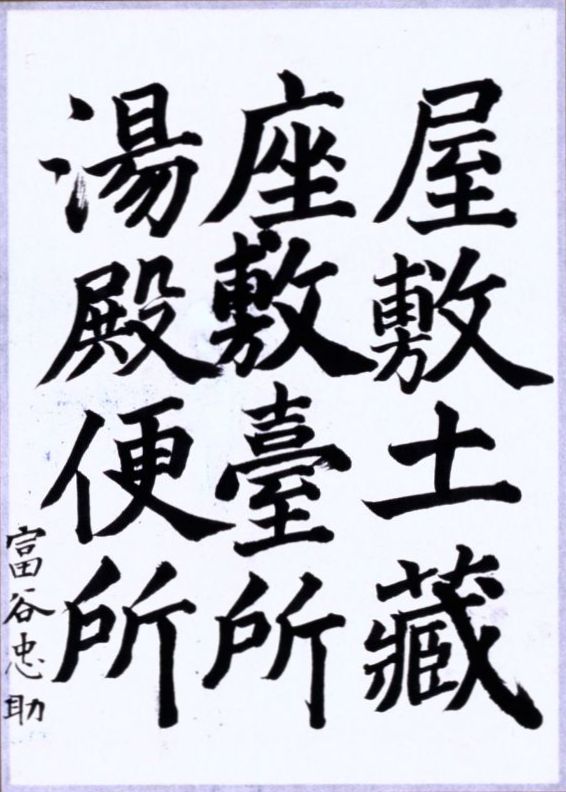 屋敷土藏
座敷臺所
湯殿便所
富谷忠助